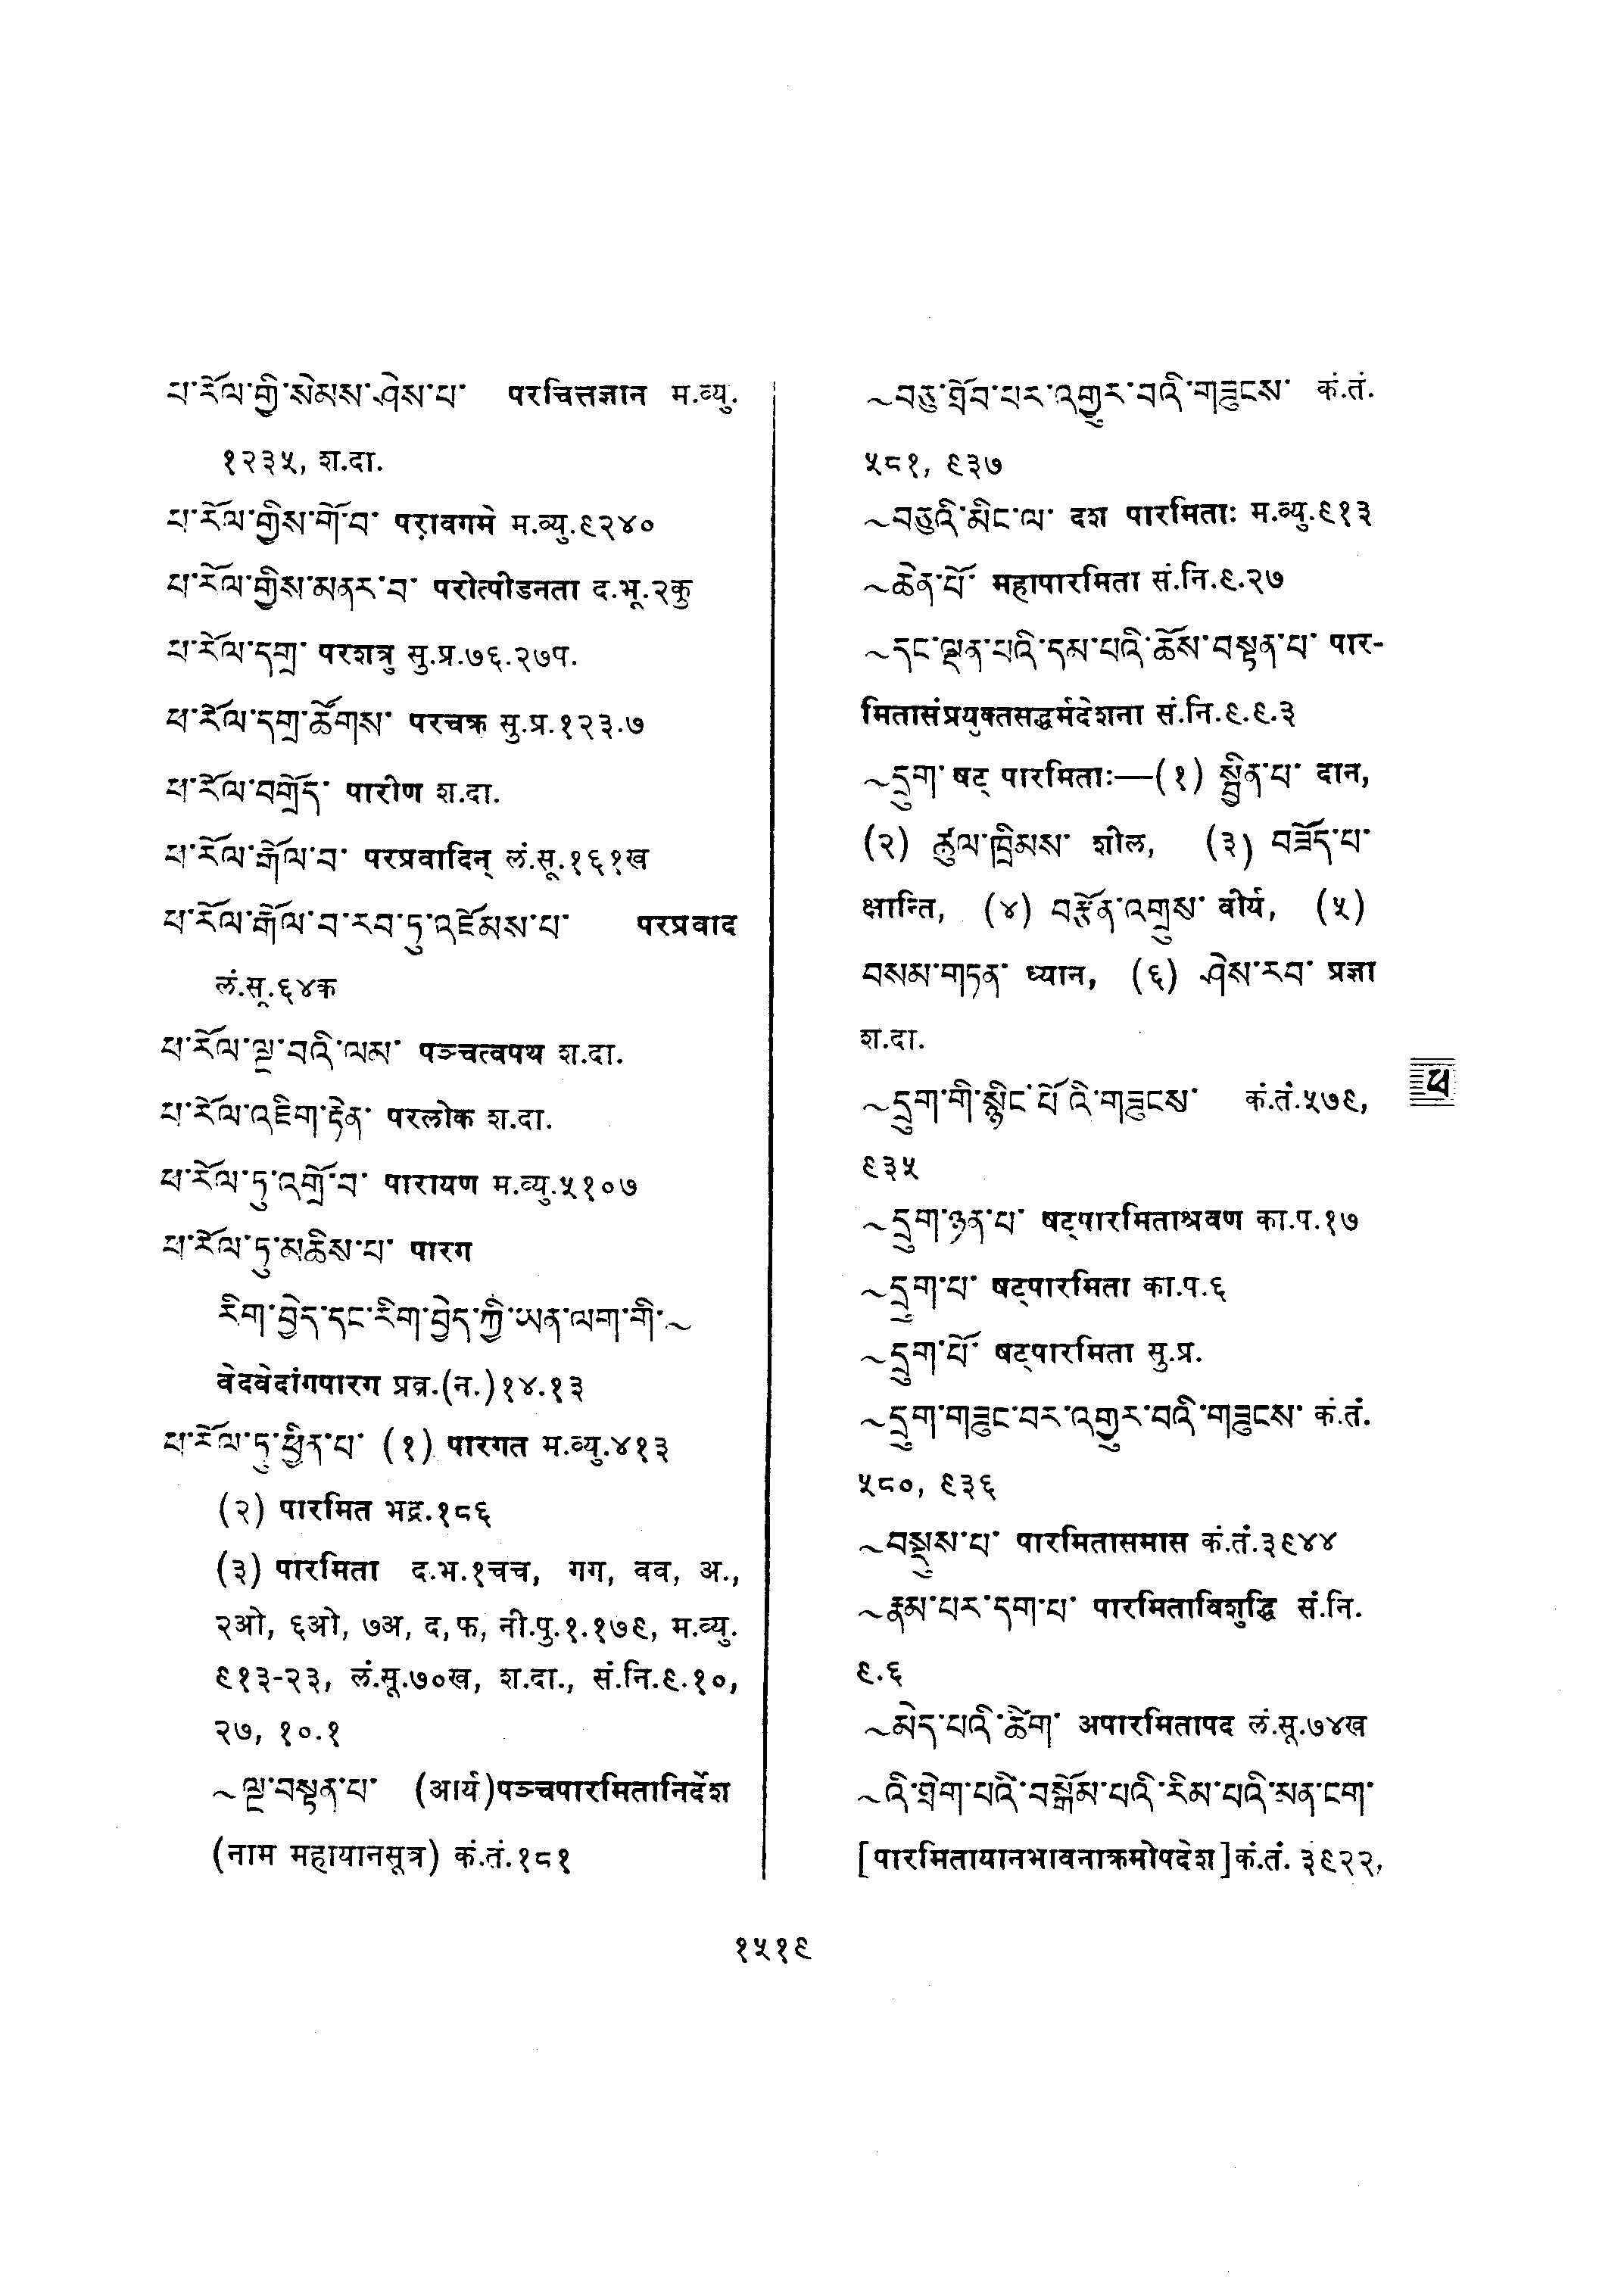 ཕ་རོལ་གྱི་སེམས་ཤེས་པ་ परचित्तज्ञान म.व्यु.
१२३५, श.दा.
ཕ་རོལ་གྱིས་གོ་བ་ परावगमे म.व्यु.९२४०
ཕ་རོལ་གྱིས་མནར་བ་ परोत्पीडनता द.भू.२कु
ཕ་རོལ་དགྲ་ परशत्रु सु.प्र.७६.२७प.
ཕ་རོལ་དགྲ་ཚོགས་ परचक्र सु.प्र.१२३.७
ཕ་རོལ་བགྲོད་ पारीण श.दा.
ཕ་རོལ་རྒོལ་བ་ परप्रवादिन् लं.सू.१६१ख
ཕ་རོལ་རྒོལ་བ་རབ་ཏུ་འཇོམས་པ་ परप्रवाद
लं.सू.६४क
ཕ་རོལ་ལྔ་བའི་ལམ་ पञ्चत्वपथ श.दा.
ཕ་རོལ་འཇིག་རྟེན་ परलोक श.दा.
ཕ་རོལ་ཏུ་འགྲོ་བ་ पारायण म.व्यु.५१०७
ཕ་རོལ་ཏུ་མཆིས་པ་ पारग
རིག་བྱེད་དང་རིག་བྱེད་ཀྱི་ཡན་ལག་གི་~
वेदवेदांगपारग प्रव्र.(न.)१४.१३
ཕ་རོལ་ཏུ་ཕྱིན་པ་ (१) पारगत म.व्यु.४१३
(२) पारमित भद्र.१८६
(३) पारमिता द.भ.१चच, गग, वव, अ.,
२ओ, ६ओ, ७अ, द, फ, नी.पु.१.१७९, म.व्यु.
९१३-२३, लं.सू.७०ख, श.दा., सं.नि.९.१०,
२७, १०.१
~ལྔ་བསྟན་པ་ (आर्य)पञ्चपारमितानिर्देश
(नाम महायानसूत्र) कं.तं.१८१
~བཅུ་ཐོབ་པར་འགྱུར་བའི་གཟུངས་ कं.तं.
५८१, ९३७
~བཅུའི་མིང་ལ་ दश पारमिताः म.व्यु.९१३
~ཆེན་པོ་ महापारमिता सं.नि.९.२७
~དང་ལྡན་པའི་དམ་པའི་ཆོས་བསྟན་པ་ पार-
मितासंप्रयुक्तसद्धर्मदेशना सं.नि.९.९.३
~དྲུག་ षट् पारमिताः—(१) སྦྱིན་པ་ दान,
(२) ཚུལ་ཁྲིམས་ शील, (३) བཟོད་པ་
क्षान्ति, (४) བརྩོན་འགྲུས་ वीर्य, (५)
བསམ་གཏན་ ध्यान, (६) ཤེས་རབ་ प्रज्ञा
श.दा.
~དྲུག་གི་སྙིང་པོའི་གཟུངས་ कं.तं.५७९,
९३५
~དྲུག་ཉན་པ་ षट्पारमिताश्रवण का.प.१७
~དྲུག་པ་ षट्पारमिता का.प.६
~དྲུག་པོ་ षट्पारमिता सु.प्र.
~དྲུག་གཟུང་བར་འགྱུར་བའི་གཟུངས་ कं.तं.
५८०, ९३६
~བསྡུས་པ་ पारमितासमास कं.तं.३९४४
~རྣམ་པར་དག་པ་ पारमिताविशुद्धि सं.नि.
९.६
~མེད་པའི་ཚིག་ अपारमितापद लं.सू.७४ख
~འི་ཐེག་པའི་བསྒོམ་པའི་རིམ་པའི་མན་ངག་
[पारमितायानभावनाक्रमोपदेश]कं.तं. ३९२२,
ཕ
१५१९